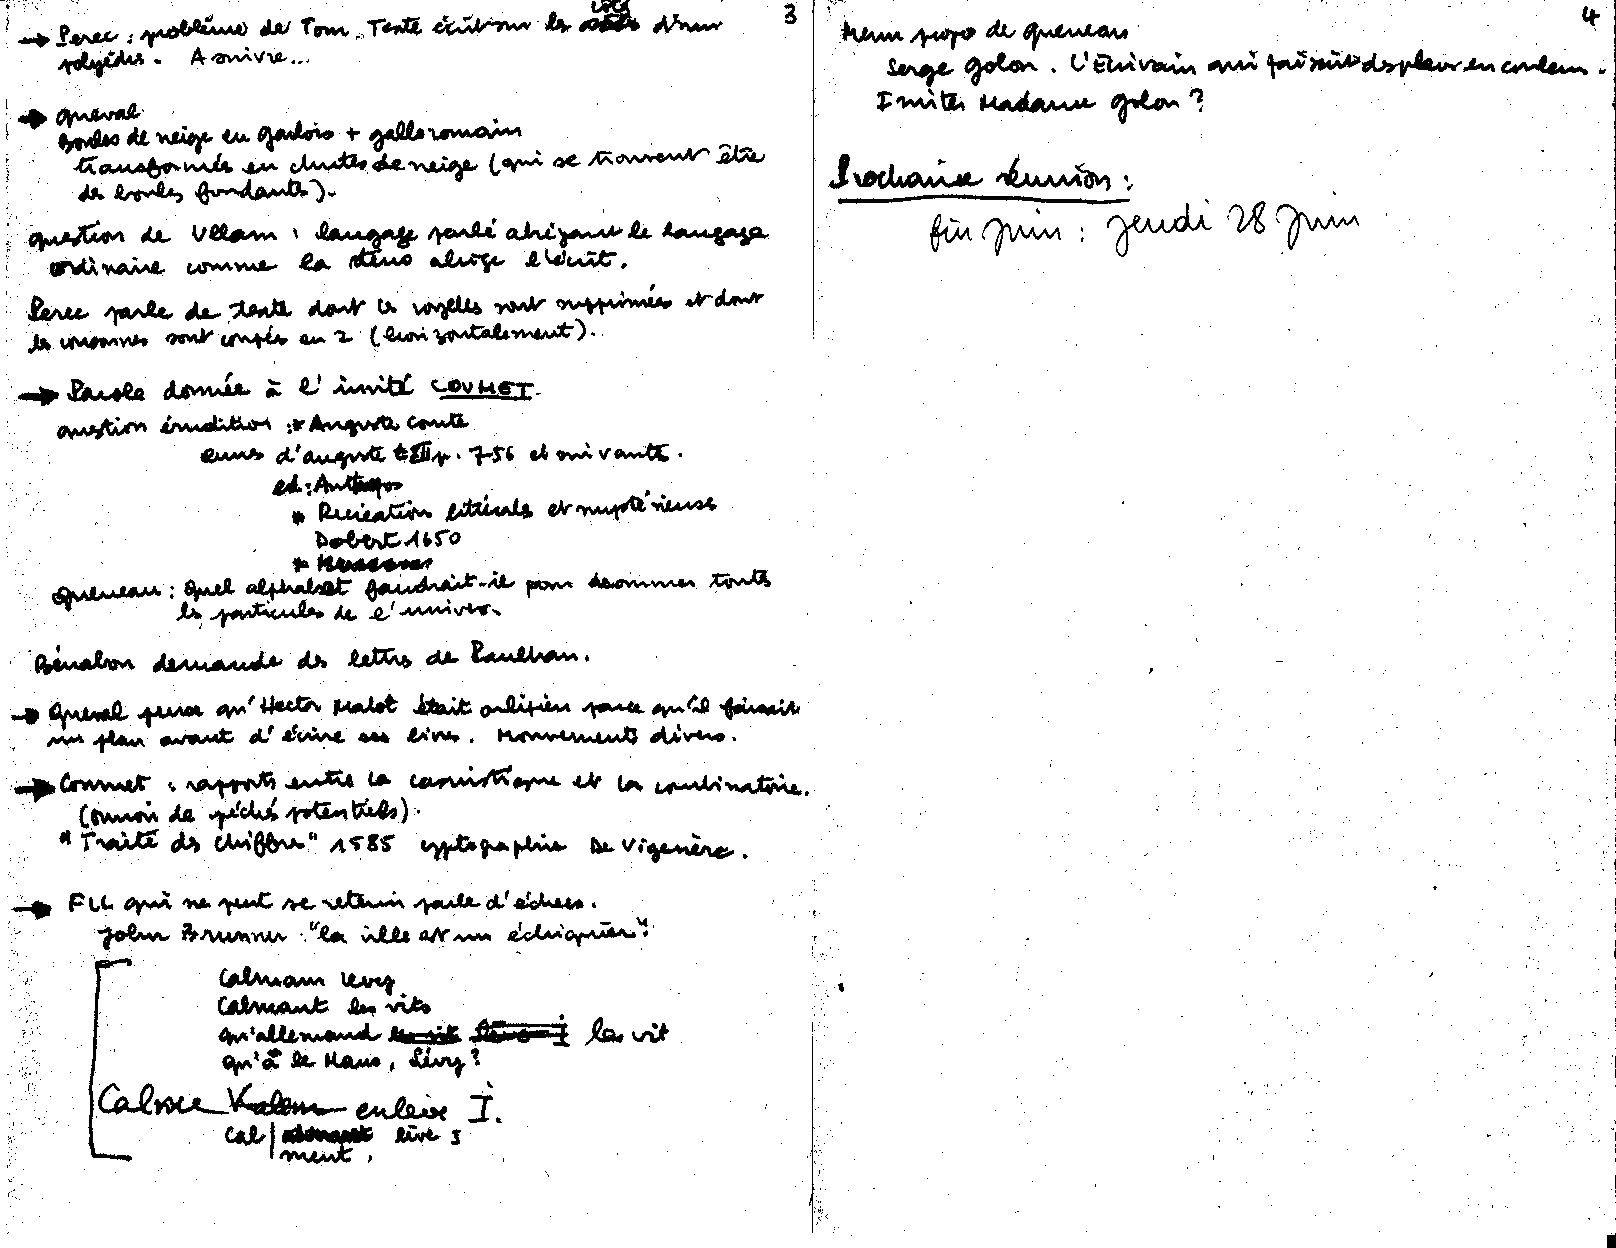 3
→ Perec : problème de Tom. Texte écrit sur les côtés d'un
polyèdre. A suivre...
→ Queval
Boules de neige en gaulois + gallo romain
transformés en chutes de neige (qui se trouvent être
des boules fondantes).
question de Ullam : langage parlé abrégeant le langage
ordinaire comme la sténo abrège l'écrit.
Perec parle de texte dont les voyelles sont supprimées et dont
les consonnes sont coupés en 2 (horizontalement).
→ Parole donnée à l'invité COUMET
question érudition : * Auguste Comte
d'auguste p. 756 et suivante.
ed : Anthropos
* Récréation littérale et mystérieuse
Dobert 1650
*
Queneau : Quel alphabet faudrait-il pour dénommer toutes
les particules de l'univers.
Bénabou demande des lettres de Paulhan.
→ Queval pense qu'Hector Malot était oulipien parce qu'il faisait
un plan avant d'écrire ses livres. Mouvements divers.
→ Coumet : rapports entre la casuistique et la combinatoire.
(onion de péchés potentiels).
"Traité des chiffres" 1585 cryptographie De Vigenère.
→ FLL qui ne peut se retenir parle d'échecs.
John Brunner "la ville est un échiquier".
Calmann Levy
Calmant les vits
qu'allemand les vit
qu'a le Mans, Lévy?
Calme enlève I.
Cal | lève I
ment.
4
Menu propos de queneau
Serge Golon. L'Ecrivain qui faisait des pleurs en couleurs.
Imiter Madame Golon ?
Prochaine réunion :
fin juin : jeudi 28 juin